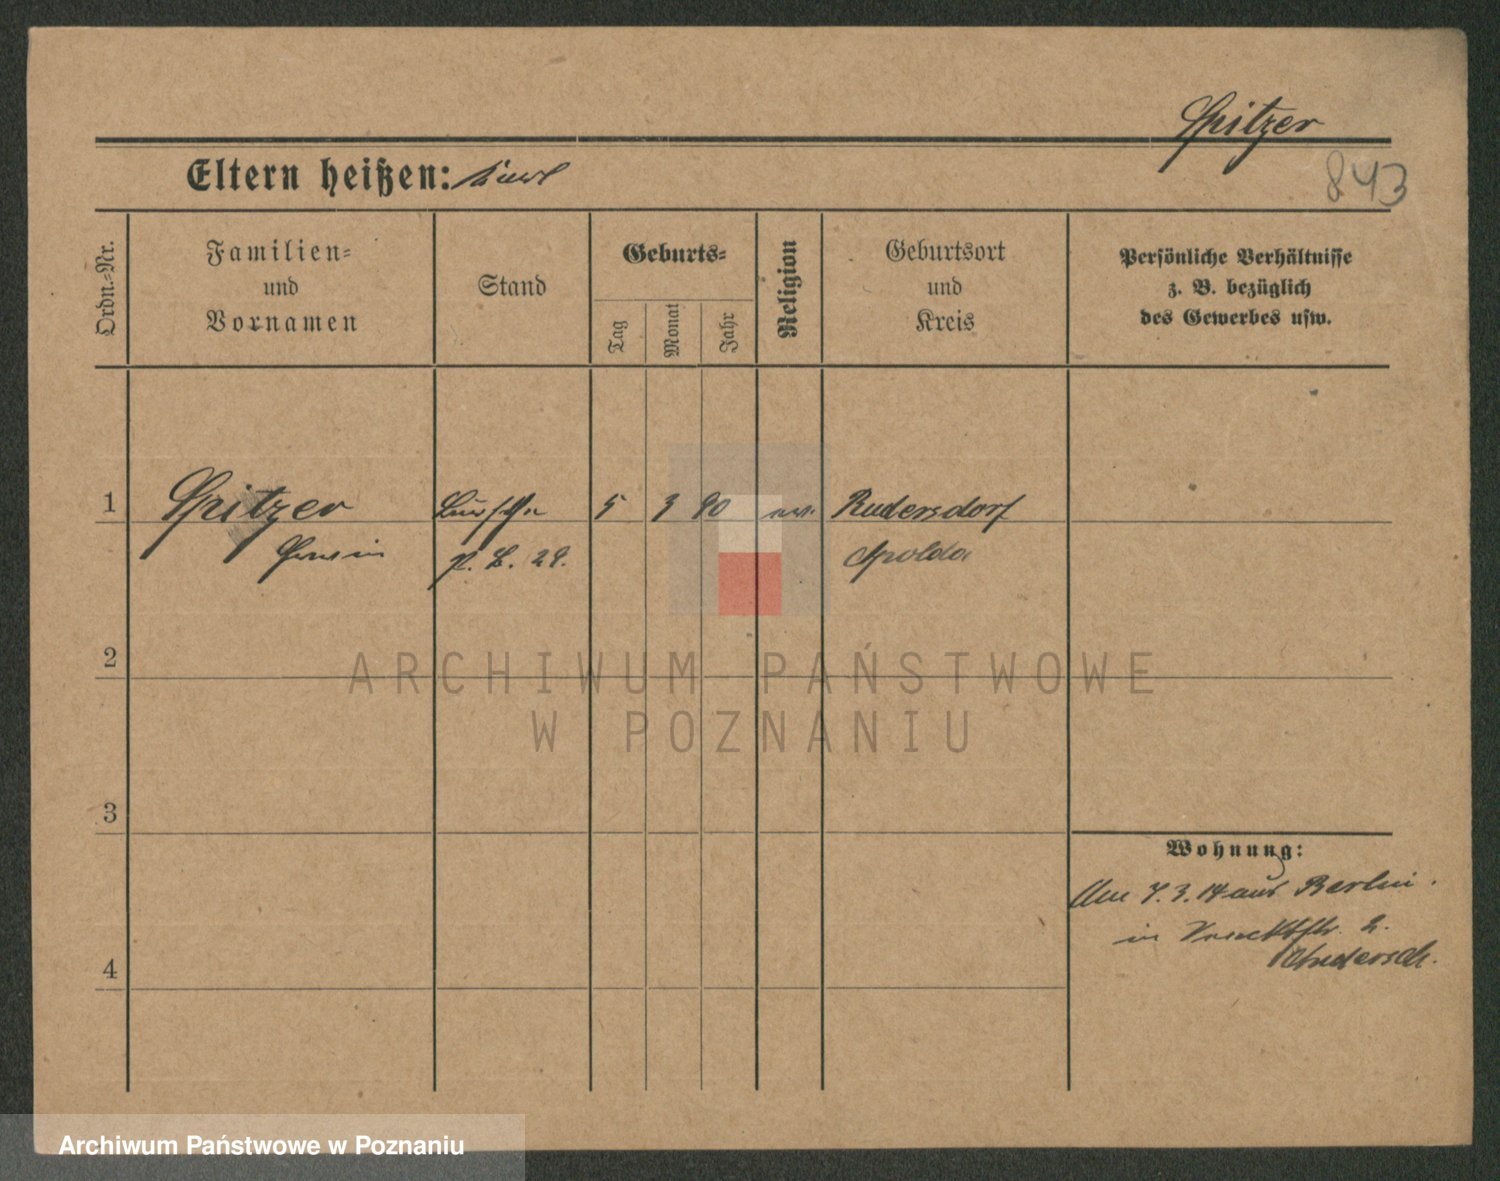 Spitzer
843
Eltern heißen:
Ordn.-Nr.
Familien-
und
Vornamen
Stand
Geburts-
Tag
Monat
Jahr
Religion
Geburtsort
und
Kreis
Persönliche Verhältnisse
z. B. bezüglich
des Gewerbes usw.
1
Spitzer
5
3
90
Rudersdorf
Apolda
2
ARCHIWUM PAŃSTWOWE
W POZNANIU
3
Wohnung:
Am 7.3.14 aus Berlin.
in
4
Archiwum Państwowe w Poznaniu